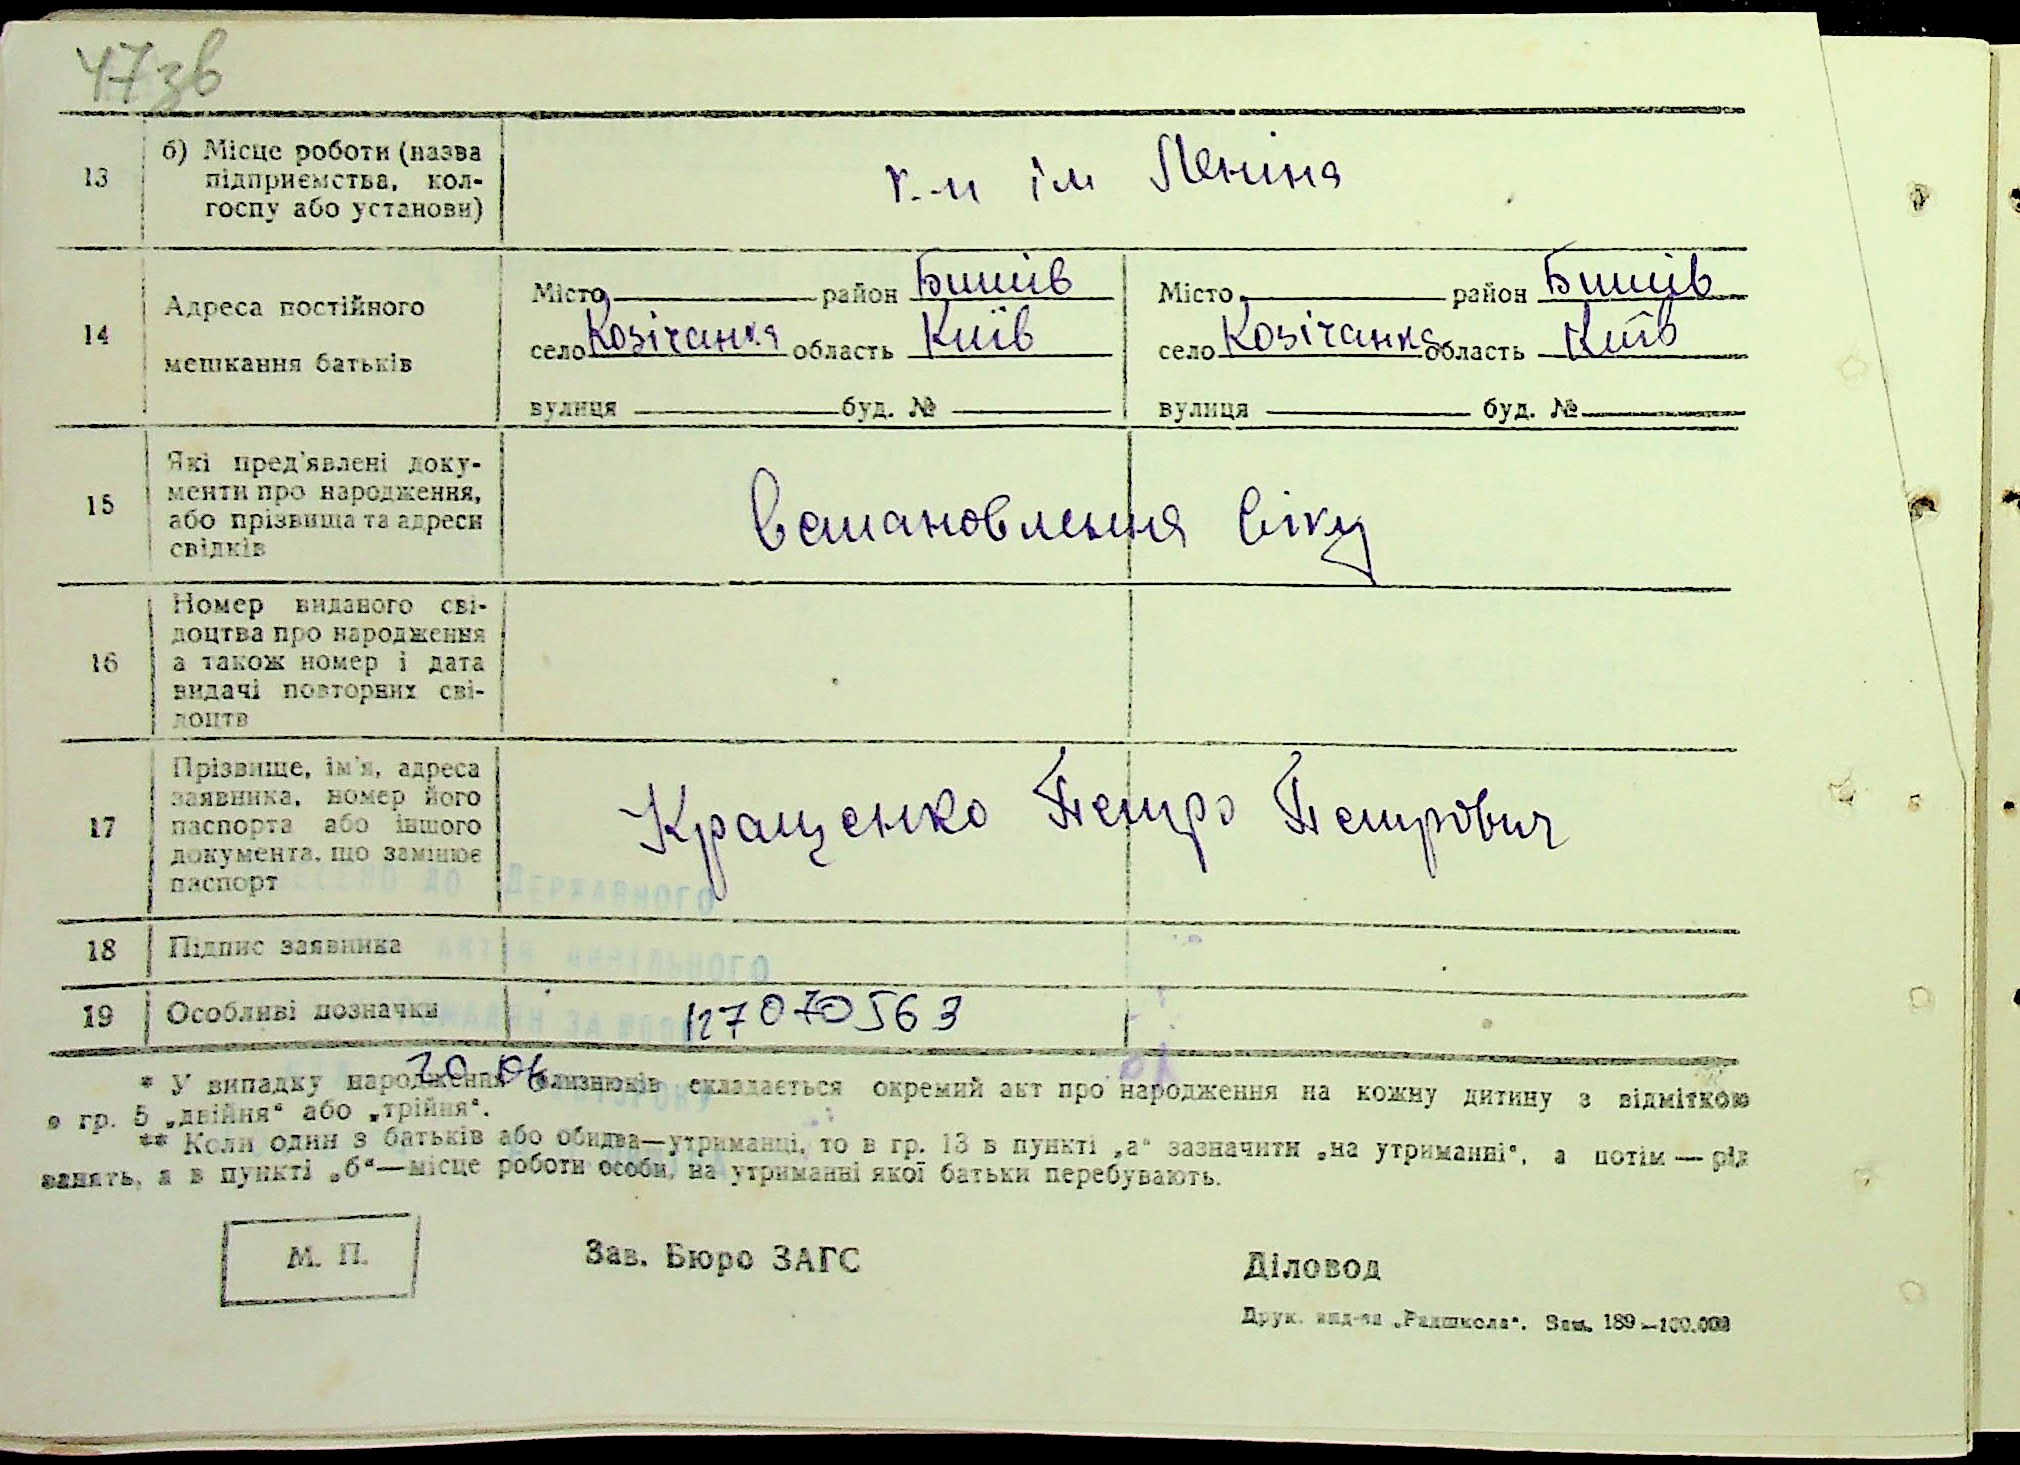 47зв
13
б) Місце роботи (назва
підприємства, кол-
госпу або установи)
к-п ім Леніна
14
Адреса постійного
мешкання батьків
Місто район Бишів
село Козічанка область Київ
вулиця буд. №
Місто район Бишів
село Козічанка область Київ
вулиця буд. №
15
Які пред'явлені доку-
менти про народження,
або прізвища та адреси
свідків
Встановлення віку
16
Номер виданого сві-
доцтва про народження
а також номер і дата
видачі повторних сві-
доцтв
17
Прізвище, ім'я, адреса
заявника, номер його
паспорта або іншого
документа, що замінює
паспорт
Кращенко Петро Петрович
ДО ДЕРЖАВНОГО
18
Підпис заявника
19
Особливі позначки
127070563
20 06
* У випадку народження близнюків складається окремий акт про народження на кожну дитину з відміткою
в гр. 5 „двійня“ або „трійня“.
** Коли один з батьків або обидва—утриманці, то в гр. 13 в пункті „а“ зазначити „на утриманні“, а потім — рід
занять, а в пункті „б“—місце роботи особи, на утриманні якої батьки перебувають.
М. П.
Зав. Бюро ЗАГС
Діловод
Друк. вид-ва „Радшкола“. Зам. 189—100.000